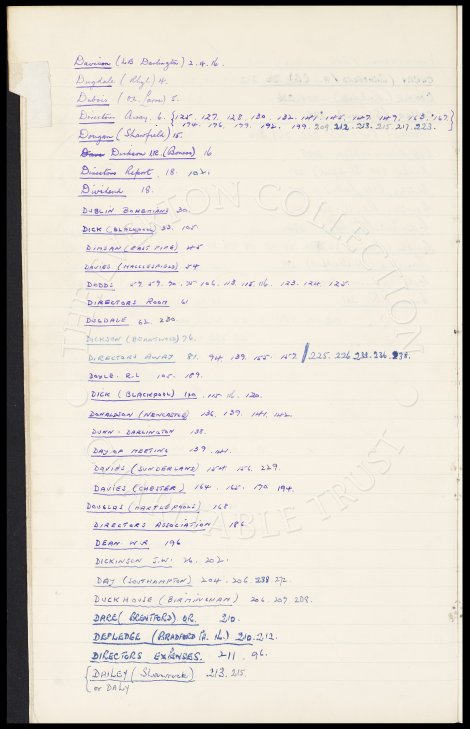 Davison (LB Darlington) 2.4.16.
Dugdale (Rhyl) 4.
Dubois 5.
Directors Away. 6. {125. 127. 128. 130. 132. 141. 145. 147. 149. 163. 167.
174. 176. 179. 192. 199. 209. 212. 213. 215. 217. 223.}
Dougan (Shawfield) 15.
Dickson W. (Boness) 16
Directors Report. 18. 102.
Dividend 18.
DUBLIN BOHEMIANS 30.
DICK (BLACKPOOL) 33. 105.
DIMSAN (EAST FIFE) 45
DAVIES (MACCLESFIELD) 54
DODDS 57. 59. 70. 75 106. 113. 115. 116. 123. 124. 125.
DIRECTORS ROOM 61
DUGDALE 62. 230.
DICKSON (BRENTWOOD) 76.
DIRECTORS AWAY 81. 94. 139. 155. 157. / 225. 226. 233. 236. 238.
DOYLE. R.L 105. 189.
DICK (BLACKPOOL) 110. 115. 116. 120.
DONALDSON (NEWCASTLE) 136. 139. 141. 142.
DUNN. DARLINGTON 138.
DAY OF MEETING 139. 141.
DAVIES (SUNDERLAND) 154. 156. 229.
DAVIES (CHESTER) 164. 165. 170. 194.
DOUGLAS (HARTLEPOOLS) 168
DIRECTORS ASSOCIATION 186.
DEAN. W.R 196
DICKINSON J.W. 26. 202.
DAY (SOUTHAMPTON) 204. 206. 238
DUCKHOUSE (BIRMINGHAM) 206. 207. 208.
DARE (BRENTFORD). OR. 210.
DEPLEDGE (BRADFORD P.A. N.) 210. 212.
DIRECTORS EXPENSES. 211. 96.
{DAILEY (Shamrock) 213. 215.
or DALY
THE COLLECTION
TRUST